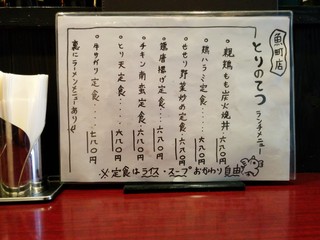 魚町店
とりのてつ ランチメニュー
。親鶏もも炭火焼丼 六八〇円
。鶏ハラミ定食・・・・ 六八〇円
。せせり野菜炒め定食・・ 六八〇円
。鶏唐揚げ定食・・・・ 六八〇円
。チキン南蛮定食・・・ 六八〇円
。とり天定食・・・・ 六八〇円
。牛サガリ定食・・・・ 七八〇円
裏にラーメンメニューあります
※定食はライス・スープおかわり自由